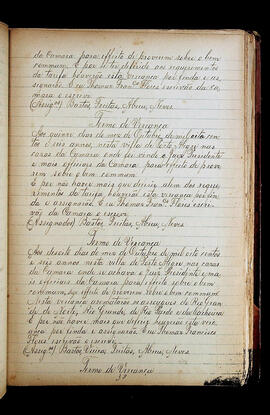 da Camara para effeito de proverem sobre o bem
commum. E por só ter deferido aos requerimentos
da tarifa houverão esta vereança por finda e as-
signarão. Eu Thomas Fran.co Flores escrivão da Ca-
mara o escrevi.
(Assig.os) Bastos, Freitas, Abreu, Neves
Termo de Vereança
Aos quinze dias do mez de Outubro de mil oito cen-
tos e seis annos, nesta villa de Porto Alegre nas
casas da Camara onde se o Juiz Presidente
e mais officiaes da Camara para effeito de prove-
rem sobre o bem commum.
E por não haver mais que deferir alem dos reque-
rimentos da tarifa houverão esta vereança por fin-
da e assignarão. E eu Thomas Fran.co Flores escri-
vão da Camara o escrevi.
(Assignados) Bastos, Freitas, Abreu, Neves
Termo de Vereança
Aos dias do mez de Outubro de mil oito centos
e seis annos nesta villa de Porto Alegre nas casas
da Camara onde se achava o Juiz Presidente e ma-
is officiaes da Camara para effeito sobre o bem
commum, effeito de proverem sobre o bem commum.
Nesta vereança os do Rio Gran-
de do Norte, Rio Grande, do Rio Pardo e
E por não haver mais que deferir houverão esta vere-
ança por finda e assignarão. Eu Thomas Francisco
Flores escrivão o escrevi.
(Assig.os) Bastos, Freitas, Abreu, Neves
Termo de Vereança